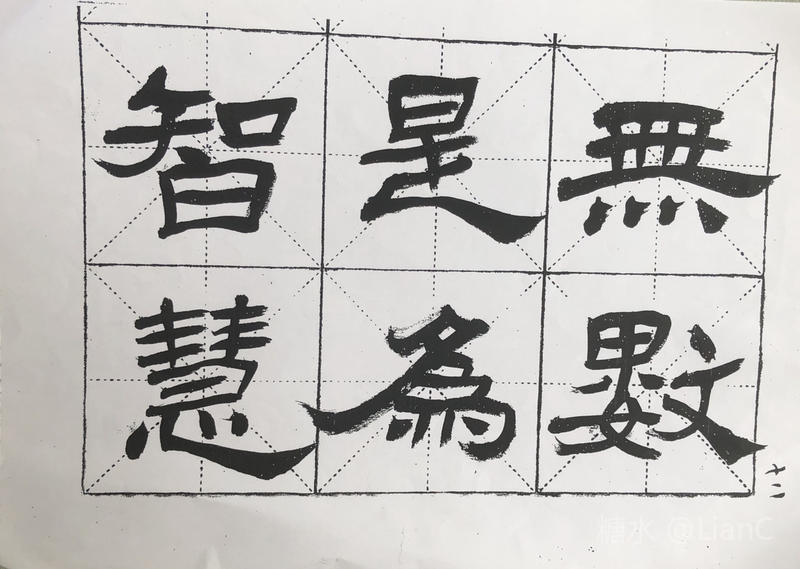 無數
是為
智慧
十二
糖水 @LianC